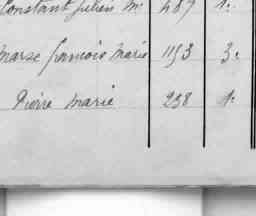 Constant Julien M. 487 1.
Marse françois Marie 1153 3.
Pierre Marie 238 1.